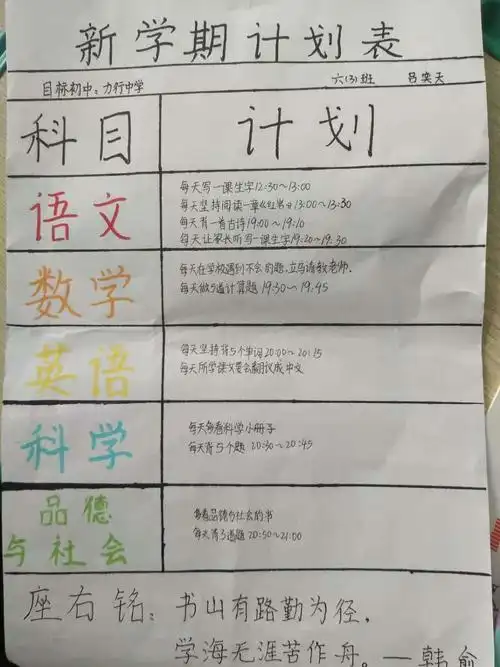 新学期计划表
目标初中：力行中学 六(3)班 吕奕天
科目 计划
语文
每天写一课生字12:30～13:00
每天坚持阅读一章《红岩》13:00～13:30
每天背一首古诗19:00～19:10
每天让家长听写一课生字19:20～19:30
数学
每天在学校遇到不会的题，立马请教老师。
每天做5道计算题19:30～19:45
英语
每天坚持背5个单词20:00～20:15
每天所学课文要会翻译成中文
科学
每天多看科学小册子
每天背5个题 20:30～20:45
品德
与社会
多看品德与社会的书
每天背3道题20:50～21:00
座右铭：书山有路勤为径，
学海无涯苦作舟。——韩愈